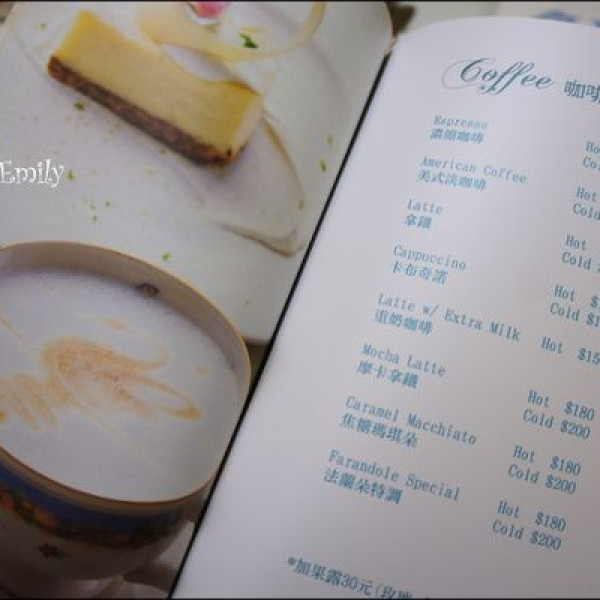 Emily
Coffee 咖啡
Espresso
濃縮咖啡
American Coffee
美式淡咖啡
Hot
Latte
拿鐵
Hot
Cold
Cappuccino
卡布奇諾
Hot
Cold
Latte w/ Extra Milk Hot
重奶咖啡
Mocha Latte Hot $180
摩卡拿鐵 Cold $200
Caramel Macchiato Hot $180
焦糖瑪琪朵 Cold $200
Farandole Special Hot $180
法蘭朵特調 Cold $200
*加果露30元(玫瑰